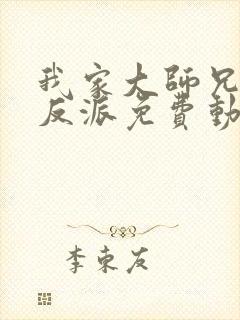 我家大師兄
反派免費動
李東友